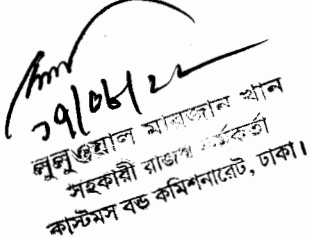 ১৭/০৮/২২
লুলুওয়াল মারজান খান
সহকারী রাজস্ব কর্মকর্তা
কাস্টমস বন্ড কমিশনারেট, ঢাকা।